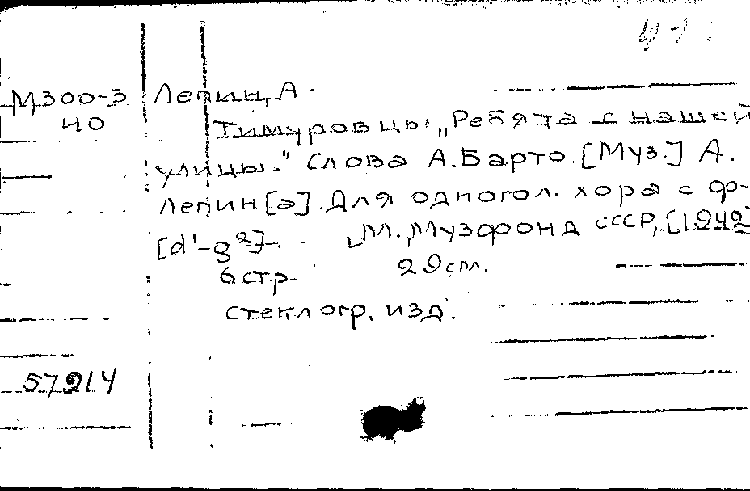 М300-3 Лепин, А.
40 Тимуровцы „Ребята с нашей
улицы." Слова А. Барто. [Муз.] А.
Лепин[а]. Для одногол. хора с ф-
[d¹-g²]. М., Музфонд СССР, [1942]
6 стр. 29 см.
стеклогр. изд.
57214